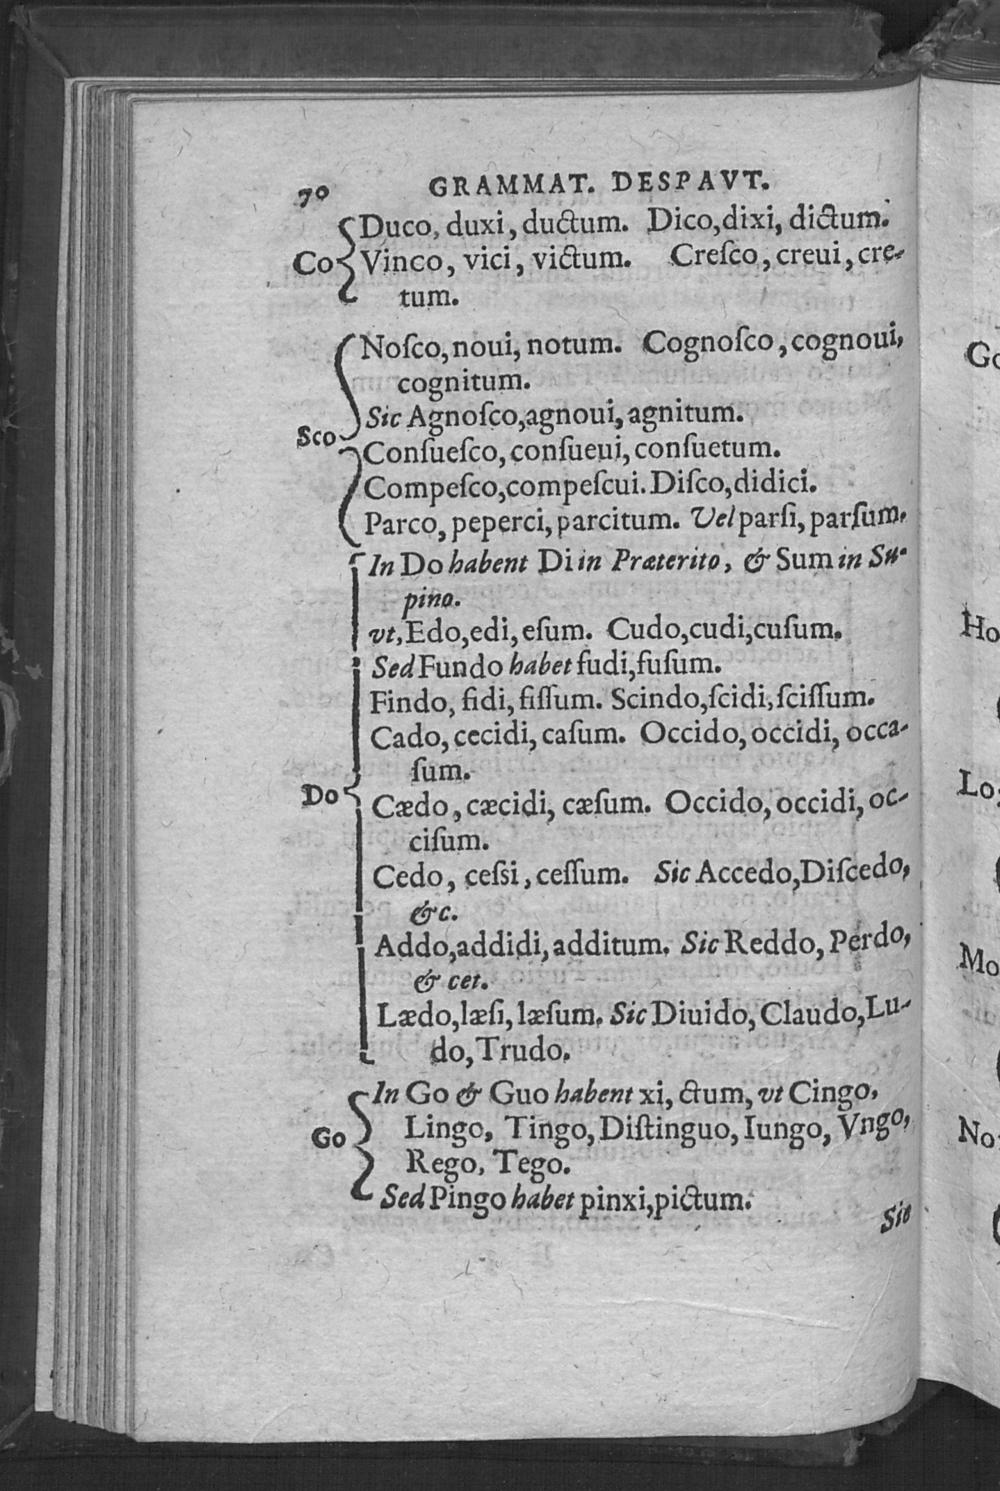 70 GRAMMAT. DESPAVT.
Duco, duxi, ductum. Dico, dixi, dictum.
Co Vinco, vici, victum. Creſco, creui, cre-
tum.
Noſco, noui, notum. Cognoſco, cognoui,
cognitum.
Sic Agnoſco, agnoui, agnitum.
Sco
Conſueſco, conſueui, conſuetum.
Compeſco, compeſcui. Diſco, didici.
Parco, peperci, parcitum. Vel parſi, parſum.
In Do habent Di in Præterito, & Sum in Su-
pino.
vt, Edo, edi, eſum. Cudo, cudi, cuſum.
Sed Fundo habet fudi, fuſum.
Findo, fidi, fiſſum. Scindo, ſcidi, ſciſſum.
Cado, cecidi, caſum. Occido, occidi, occa-
ſum.
Do Cædo, cæcidi, cæſum. Occido, occidi, oc-
ciſum.
Cedo, ceſsi, ceſſum. Sic Accedo, Diſcedo,
&c.
Addo, addidi, additum. Sic Reddo, Perdo,
& cet.
Lædo, læſi, læſum. Sic Diuido, Claudo, Lu-
do, Trudo.
In Go & Guo habent xi, ctum, vt Cingo,
Go Lingo, Tingo, Diſtinguo, Iungo, Vngo,
Rego, Tego.
Sed Pingo habet pinxi, pictum.
Sic
Go
Ho
Mo